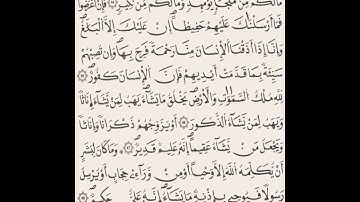 مَالَكُم مِّن مَّلْجَإٍ يَوْمَئِذٍ وَمَالَكُم مِّن نَّكِيرٍ ۝ فَإِنْ أَعْرَضُوا
فَمَا أَرْسَلْنَٰكَ عَلَيْهِمْ حَفِيظًا إِنْ عَلَيْكَ إِلَّا ٱلْبَلَٰغُ
وَإِنَّا إِذَا أَذَقْنَا ٱلْإِنسَٰنَ مِنَّا رَحْمَةً فَرِحَ بِهَا وَإِن تُصِبْهُمْ
سَيِّئَةٌ بِمَا قَدَّمَتْ أَيْدِيهِمْ فَإِنَّ ٱلْإِنسَٰنَ كَفُورٌ ۝
لِلَّهِ مُلْكُ ٱلسَّمَٰوَٰتِ وَٱلْأَرْضِ يَخْلُقُ مَا يَشَاءُ يَهَبُ لِمَن يَشَاءُ إِنَٰثًا
وَيَهَبُ لِمَن يَشَاءُ ٱلذُّكُورَ ۝ أَوْ يُزَوِّجُهُمْ ذُكْرَانًا وَإِنَٰثًا
وَيَجْعَلُ مَن يَشَاءُ عَقِيمًا إِنَّهُ عَلِيمٌ قَدِيرٌ ۝ وَمَا كَانَ لِبَشَرٍ
أَن يُكَلِّمَهُ ٱللَّهُ إِلَّا وَحْيًا أَوْ مِن وَرَاءِ حِجَابٍ أَوْ يُرْسِلَ
رَسُولًا فَيُوحِيَ بِإِذْنِهِ مَا يَشَاءُ إِنَّهُ عَلِيٌّ حَكِيمٌ